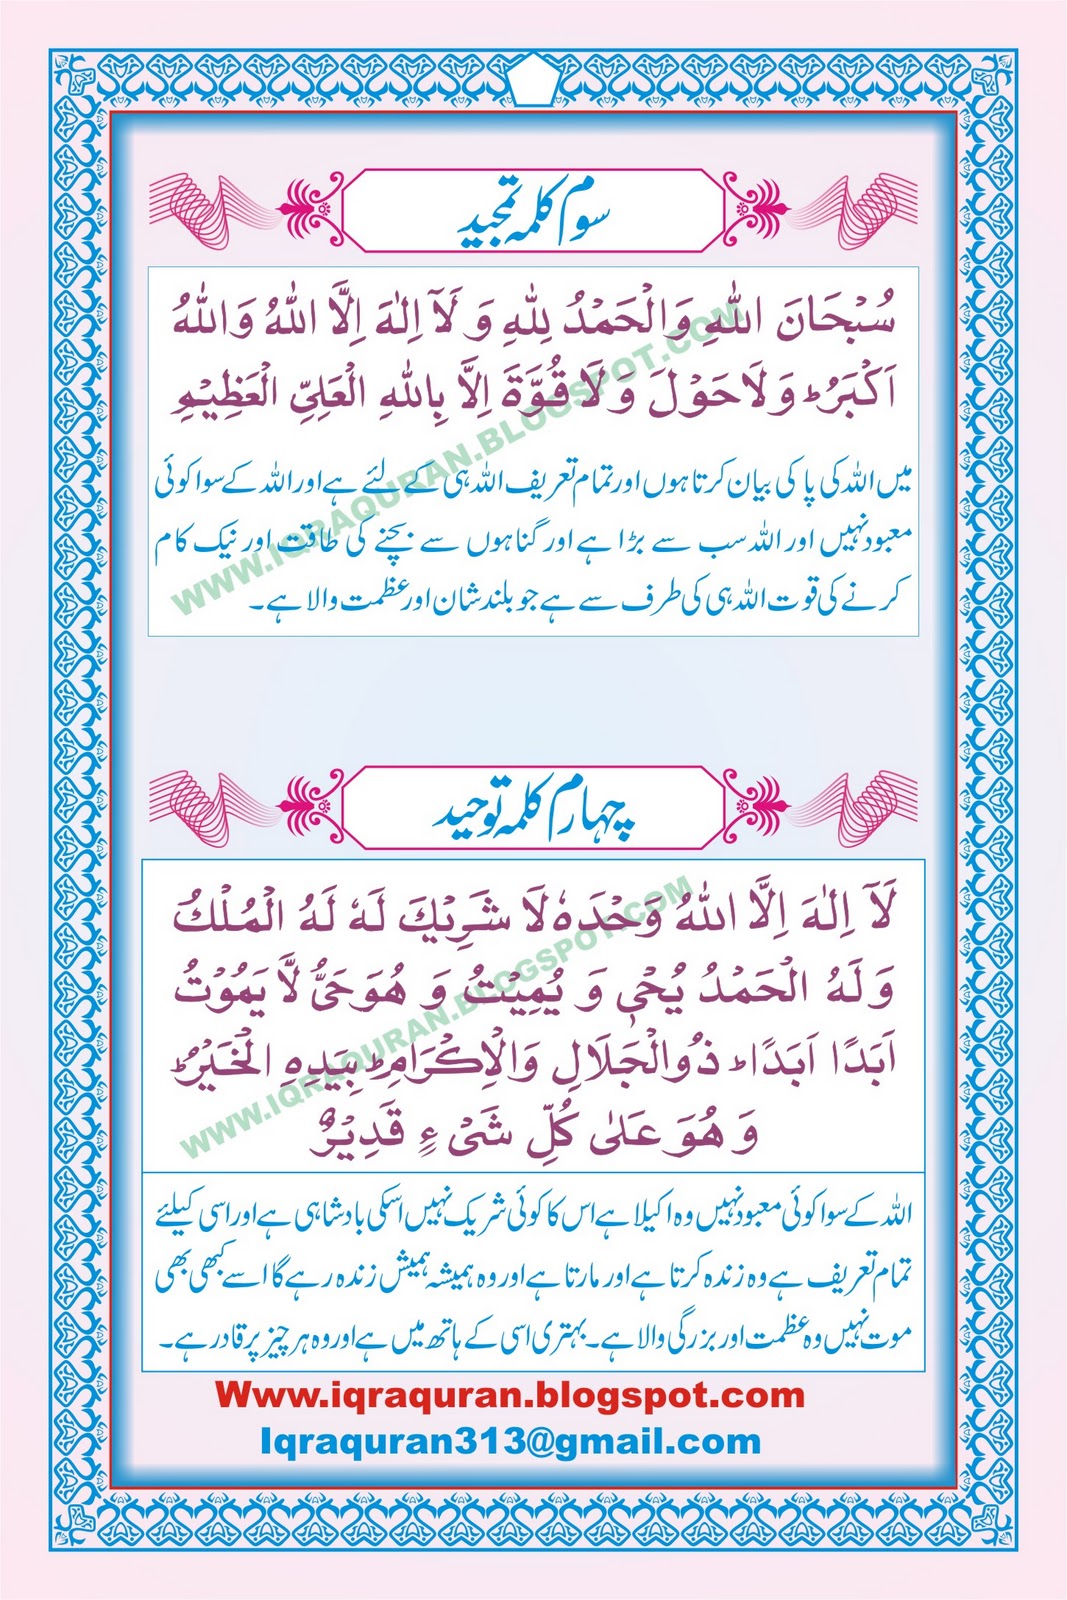 سوم کلمہ تمجید
سُبْحَانَ اللّٰهِ وَالْحَمْدُ لِلّٰهِ وَ لَآ اِلٰهَ اِلَّا اللّٰهُ وَاللّٰهُ
اَكْبَرُؕ وَلَا حَوْلَ وَلَا قُوَّةَ اِلَّا بِاللّٰهِ الْعَلِيِّ الْعَظِيْمِ
میں اللہ کی پاکی بیان کرتا ہوں اور تمام تعریف اللہ ہی کے لئے ہے اور اللہ کے سوا کوئی
معبود نہیں اور اللہ سب سے بڑا ہے اور گناہوں سے بچنے کی طاقت اور نیک کام
کرنے کی قوت اللہ ہی کی طرف سے ہے جو بلند شان اور عظمت والا ہے۔
WWW.IQRAQURAN.BLOGSPOT.COM
چہارم کلمہ توحید
لَآ اِلٰهَ اِلَّا اللّٰهُ وَحْدَهٗ لَا شَرِيْكَ لَهٗ لَهُ الْمُلْكُ
وَ لَهُ الْحَمْدُ يُحْيٖ وَ يُمِيْتُ وَ هُوَ حَيٌّ لَّا يَمُوْتُ
اَبَدًا اَبَدًاؕ ذُوالْجَلَالِ وَالْاِكْرَامِؕ بِيَدِهِ الْخَيْرُؕ
وَ هُوَ عَلٰى كُلِّ شَيْءٍ قَدِيْرٌ
WWW.IQRAQURAN.BLOGSPOT.COM
اللہ کے سوا کوئی معبود نہیں وہ اکیلا ہے اس کا کوئی شریک نہیں اسکی بادشاہی ہے اور اسی کیلئے
تمام تعریف ہے وہ زندہ کرتا ہے اور مارتا ہے اور وہ ہمیشہ ہمیش زندہ رہے گا اسے کبھی بھی
موت نہیں وہ عظمت اور بزرگی والا ہے۔ بہتری اسی کے ہاتھ میں ہے اور وہ ہر چیز پر قادر ہے۔
Www.iqraquran.blogspot.com
Iqraquran313@gmail.com